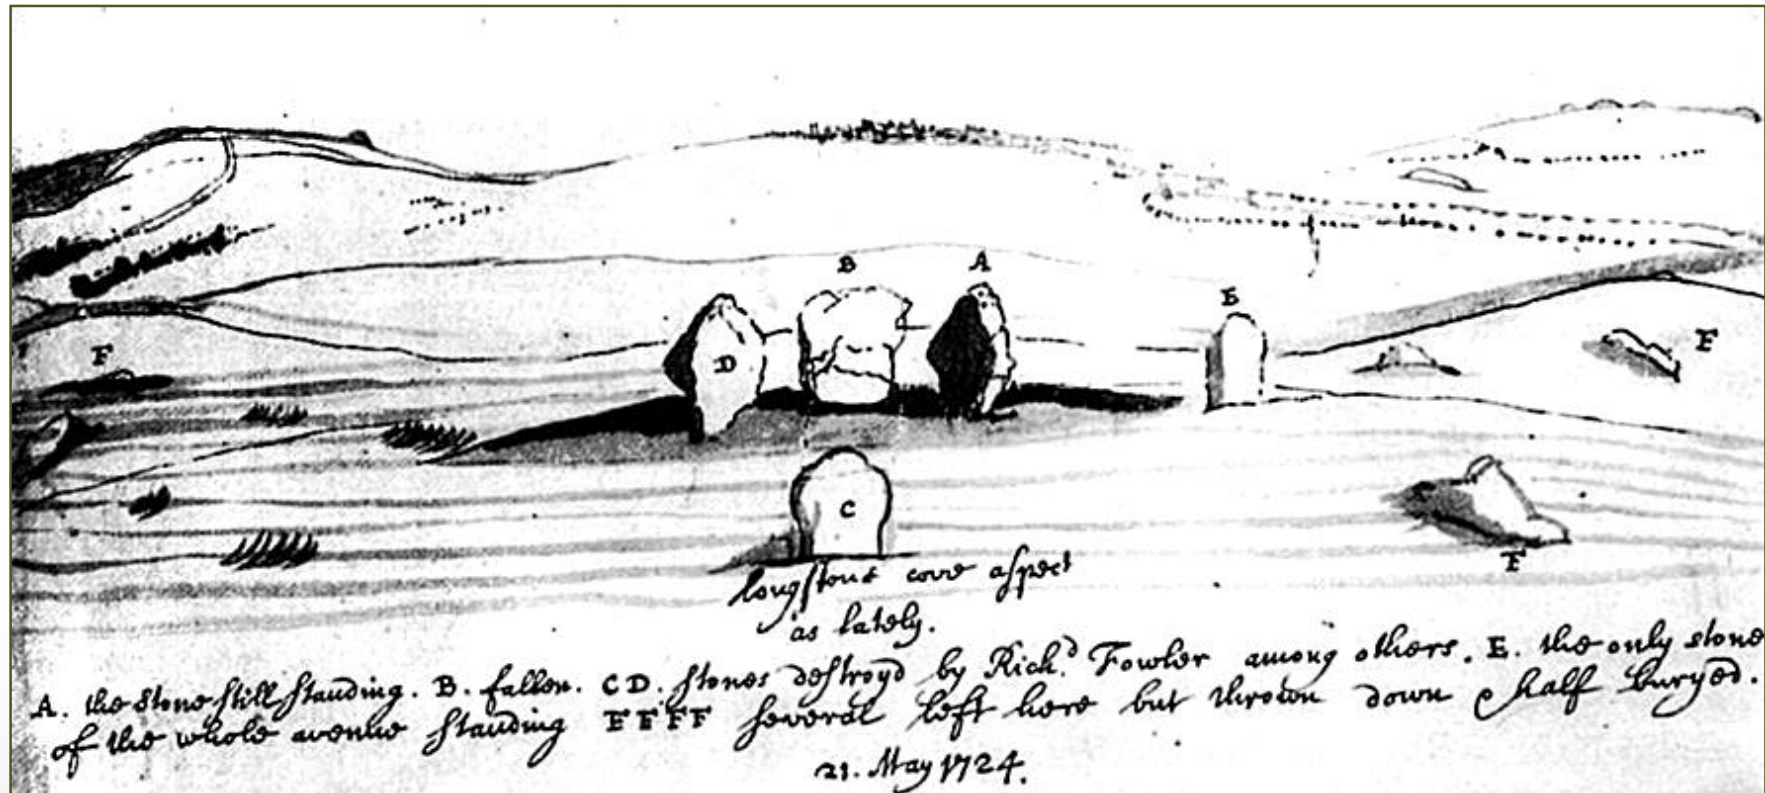 B
A
E
D
F
F
C
F
longstone cove aspect
as lately.
A. the stone still standing. B. fallen. CD. stones destroyd by Rich.d Fowler among others. E. the only stone
of the whole avenue standing FFFF several left here but thrown down & half buryed.
21. May 1724.